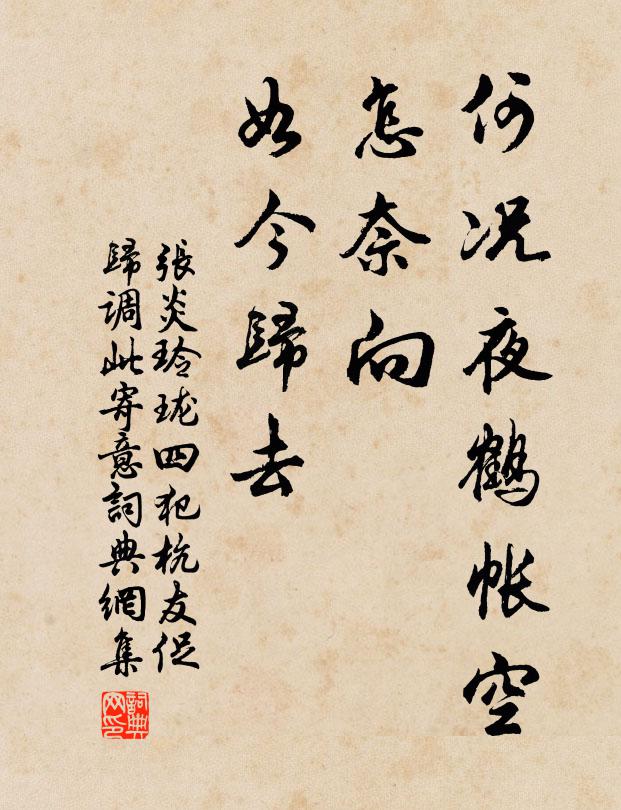 何况夜鶴帳空
怎奈向
如今歸去
張炎玲瓏四犯杭友促
歸调此寄意詞典網集
詞典
网印